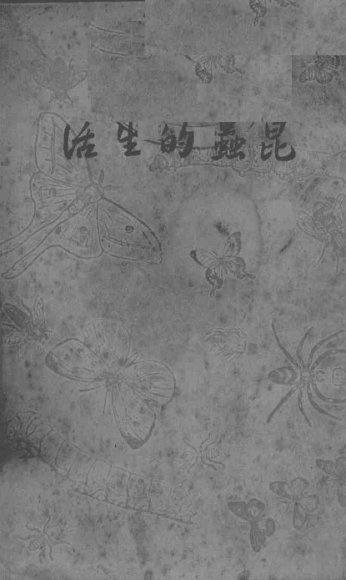 昆蟲的生活